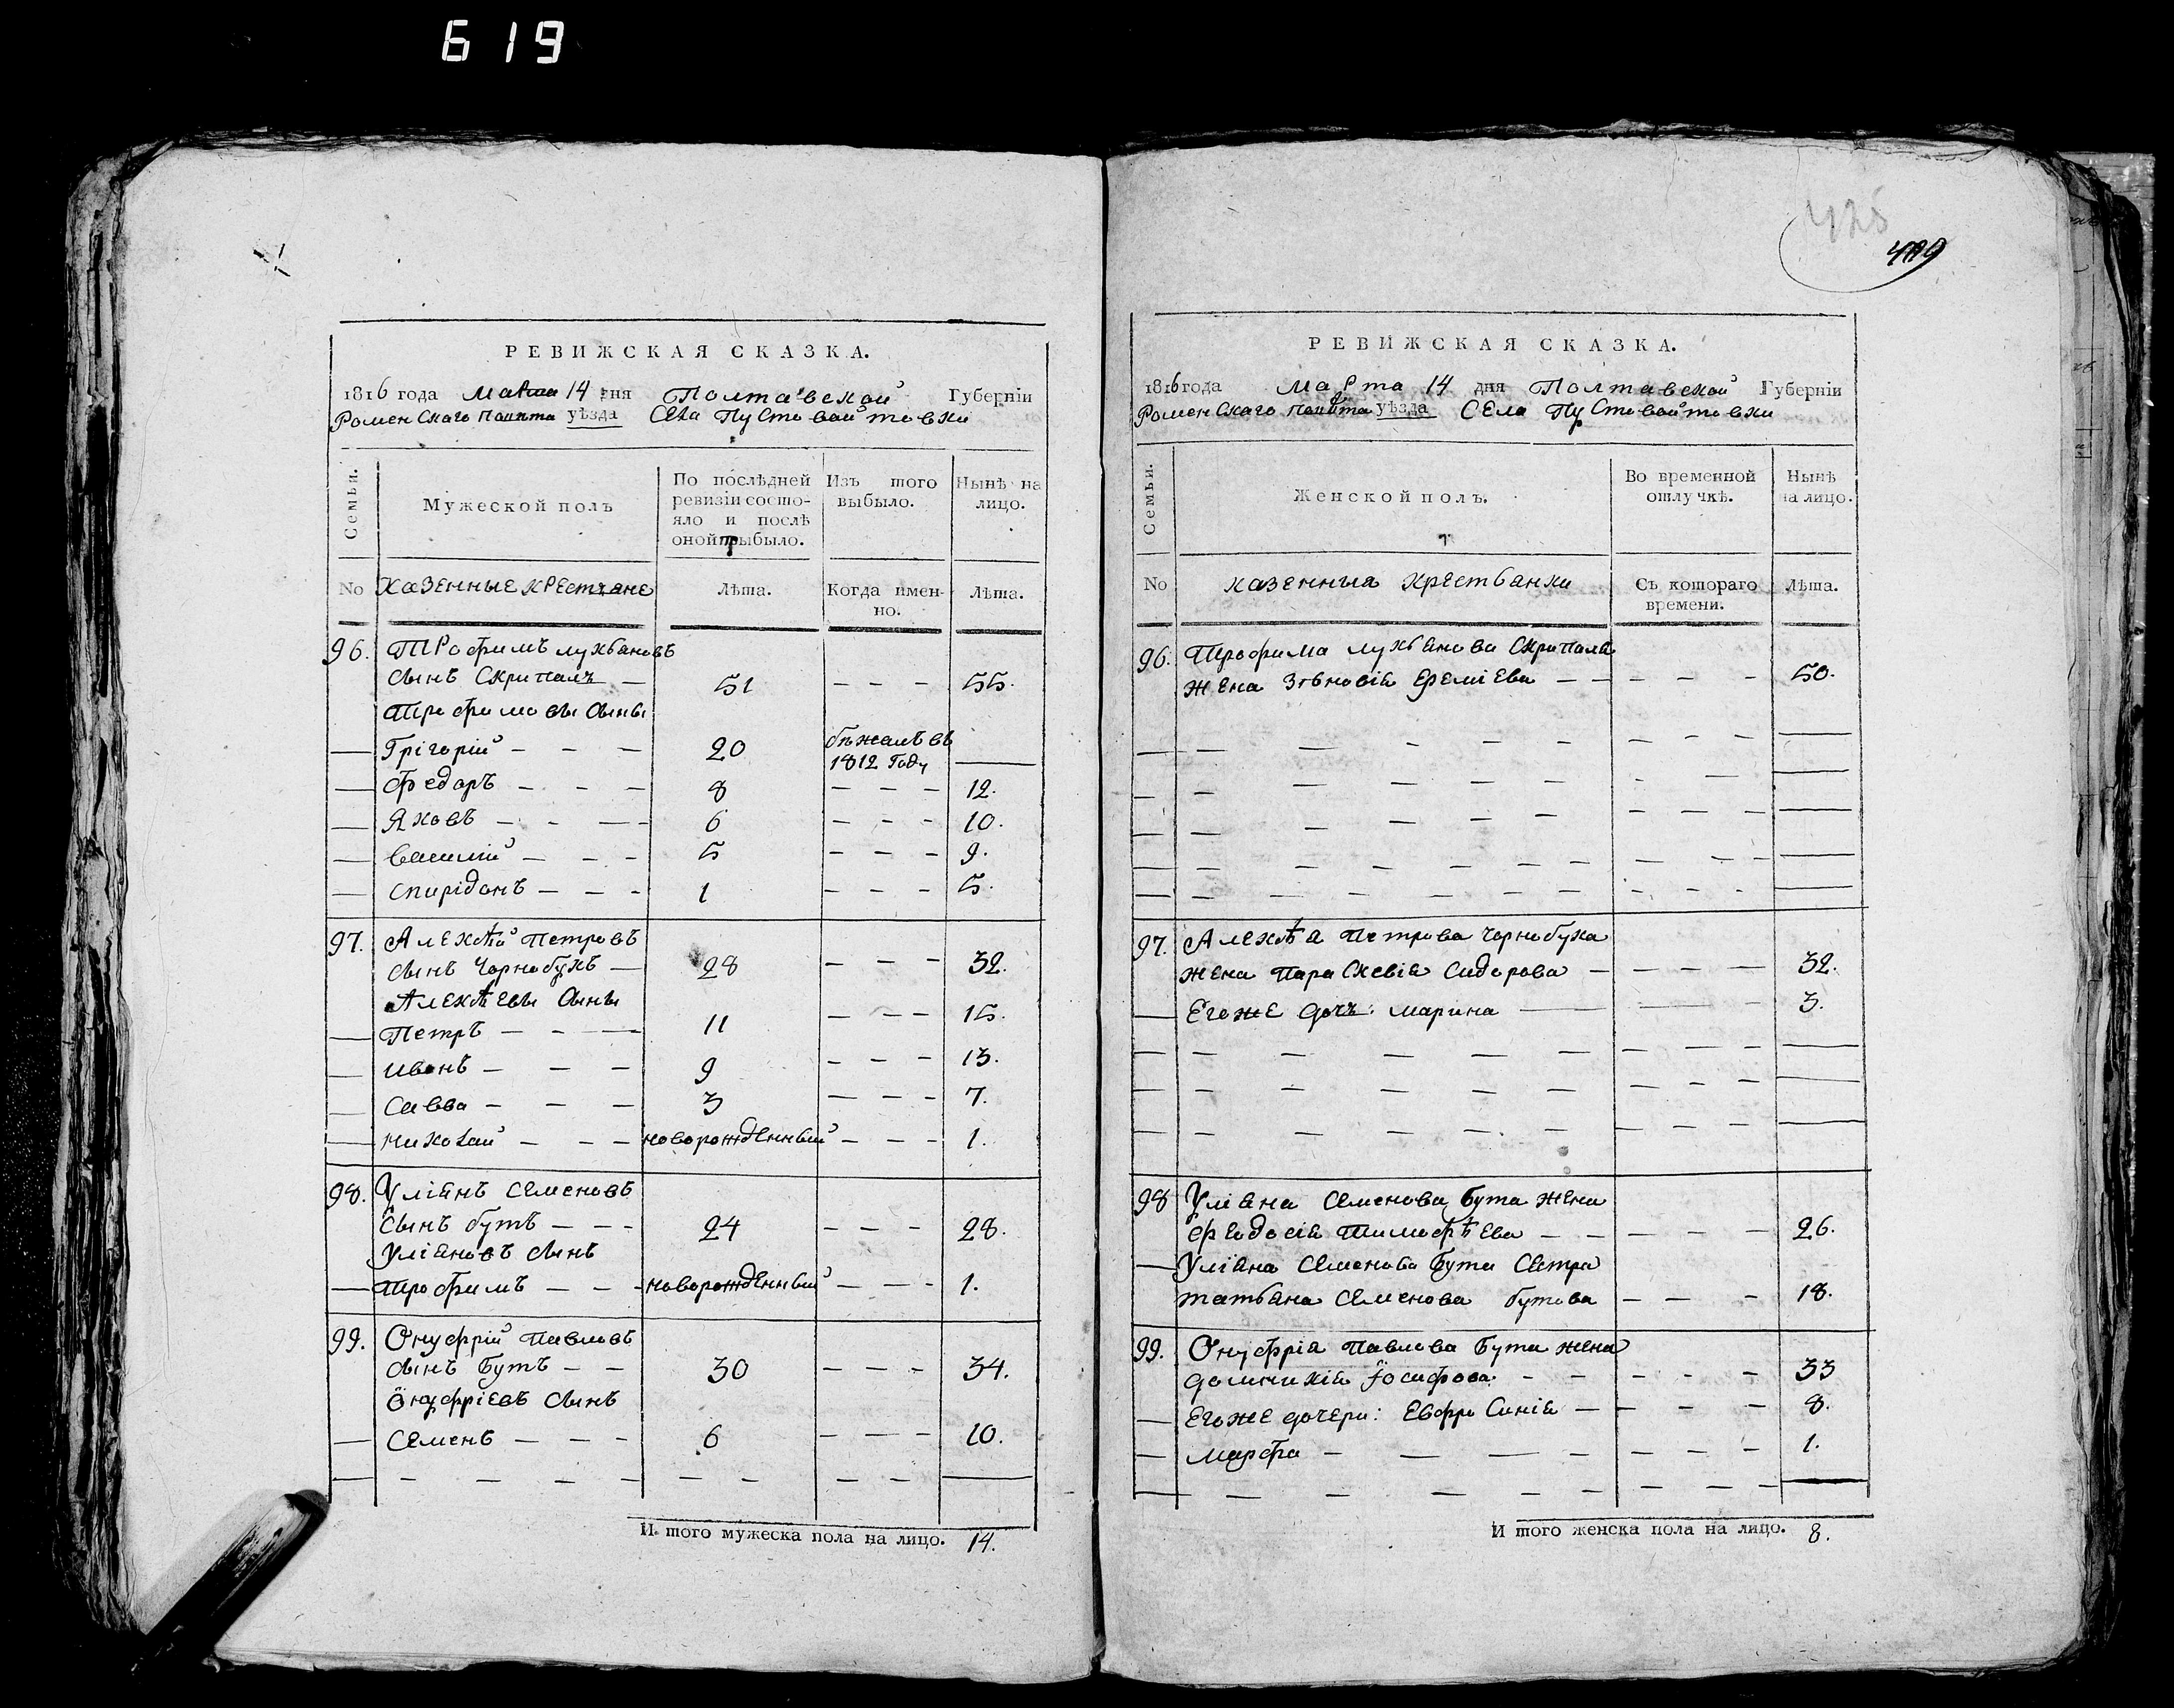 619
РЕВИЖСКАЯ СКАЗКА.
1816 года Марта 14 дня Полтавской Губерніи
Роменскаго повѣта уѣзда Села Пустовойтовки
Семьи.
Мужеской полъ
По послѣдней ревизіи состояло и послѣ оной прибыло.
Изъ того выбыло.
Нынѣ на лицо.
No
Казенные крестяне
Лѣта.
Когда именно.
Лѣта.
96. Трофимъ лукьяновъ
сынъ Скрипаль — 51 – – – 55.
Трофимовы сыны
— Григорій – – – 20 бѣжалъ въ 1812 году —
— Федоръ – – – 8 – – – 12.
— Яковъ – – – 6 – – – 10.
— Василій – – – 5 – – – 9.
— Спирідонъ – – – 1 – – – 5.
97. Алексѣй Петровъ
сынъ Чорнобукъ — 28 – – – 32.
Алексѣевы сыны
— Петръ – – – 11 – – – 15.
— иванъ – – – 9 – – – 13.
— Савва – – – 3 – – – 7.
— николай – – – новорожденный – – – 1.
98. Уліянъ Семеновъ
сынъ бутъ – – – 24 – – – 28.
Уліяновъ сынъ
— Трофимъ – – – новорожденный – – – 1.
99. Онуфрій Павловъ
сынъ Бутъ – – 30 – – – 34.
Онуфріевъ сынъ
— Семенъ – – – 6 – – – 10.
И того мужеска пола на лицо. 14.
429
РЕВИЖСКАЯ СКАЗКА.
1816 года Марта 14 дня Полтавской Губерніи
Роменскаго повѣта уѣзда Села Пустовойтовки
Семьи.
Женской полъ.
Во временной отлучкѣ.
Нынѣ на лицо.
No
казенныя крестьянки
Съ котораго времени.
Лѣта.
96. Трофима лукьянова Скрипаля
жена Зѣновія Еремієва – – – – – 50.
97. Алексѣя Петрова Чорнобука
жена Параскевія Сидорова – – – – 32.
— Егоже дочь: марина — — 3.
98 Уліяна Семенова Бута жена
Феодосія Тимофѣева – – – – – 26.
— Уліяна Семенова Бута Сестра
татьяна Семенова бутова – – – 18.
99. Онуфрія Павлова Бута жена
домникія Іосифова – – – – – 33
— Егоже дочери: Евфросинія – – – – 8.
— марфа – – – – – – – 1.
И того женска пола на лицо. 8.